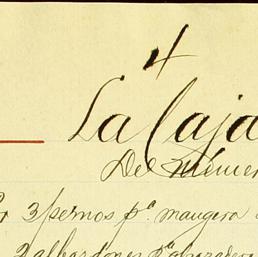 4
La Caja
Del Númer
3 pernos pª. maugera
2 albardones pª